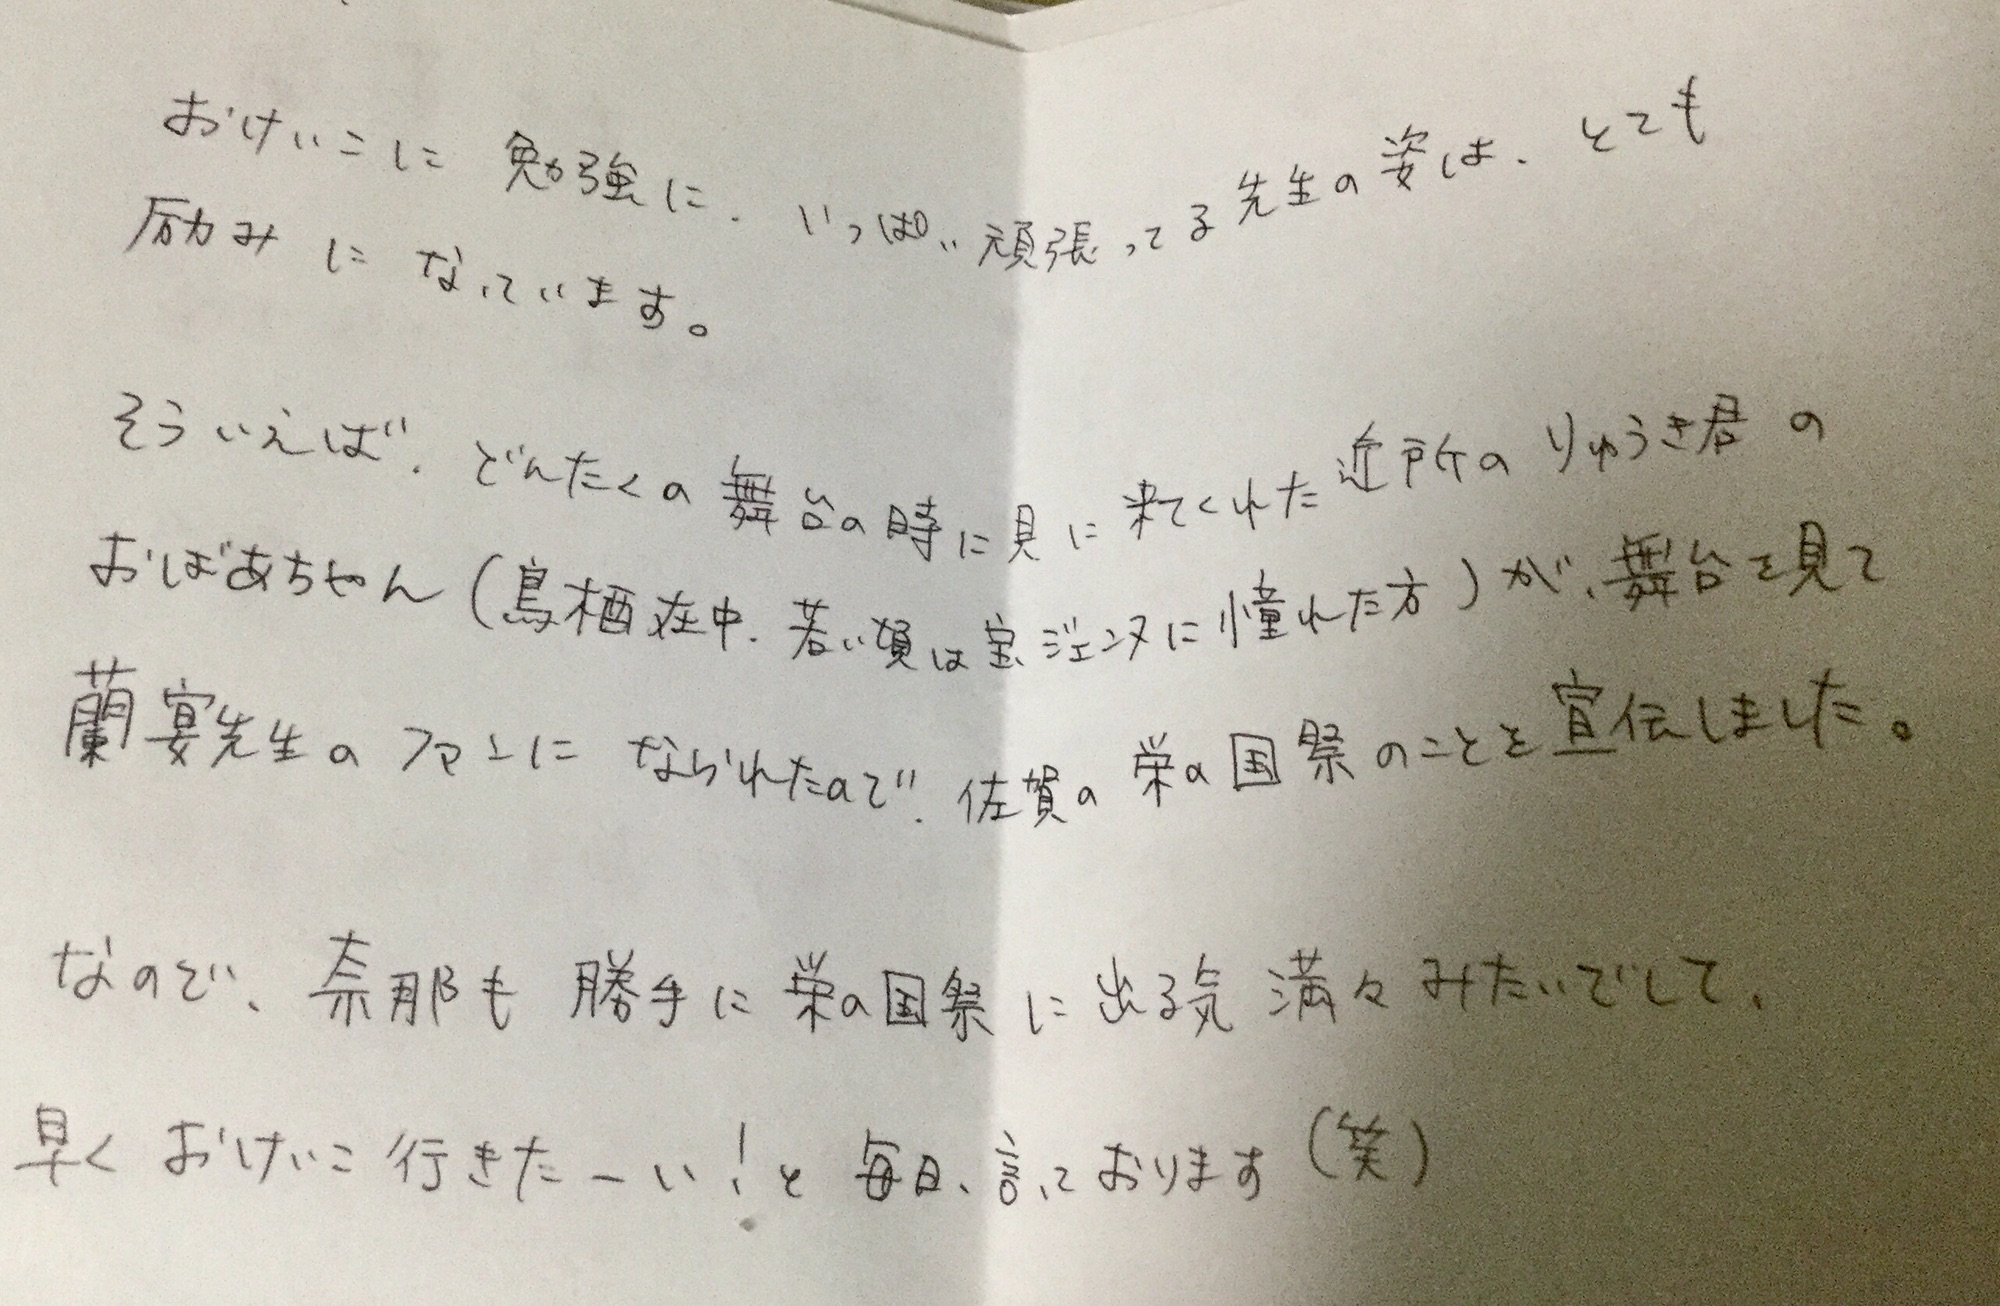 おけいこに 勉強に、いっぱい頑張ってる先生の姿は、とても
励みに なっています。
そういえば、どんたくの舞台の時に見に来てくれた近所のりゅうき君の
おばあちゃん(鳥栖在中、若い頃は宝ジェンヌに憧れた方)が、舞台を見て
蘭宴先生のファンに なられたので、佐賀の栄の国祭のことを宣伝しました。
なので、奈那も 勝手に栄の国祭に出る気 満々みたいでして、
早く おけいこ行きたーい!と 毎日、言っております(笑)